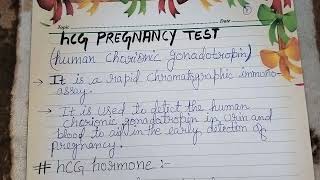 Topic
Date
hCG PREGNANCY TEST
(human chorionic gonadotropin)
→ It is a rapid chromatygraphic immuno-
assay.
→ It is used to detict the human
chorionic gonadotropin in urin and
blood to aid in the early detection of
pregnancy.
# hCG hormone :-